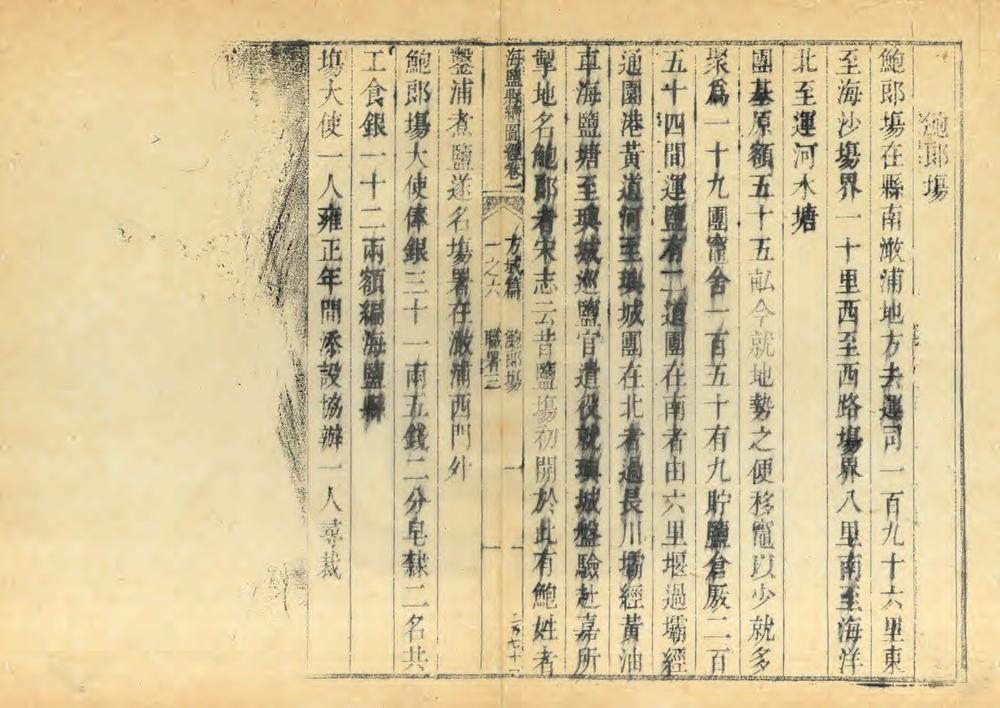 鮑郎塲
鮑郎塲在縣南澉浦地方去運司一百九十六里東
至海沙塲界一十里西至西路塲界八里南至海洋
北至運河水塘
團基原額五十五畝今就地勢之便移竈以少就多
聚為一十九團竈舍一百五十有九貯鹽倉厫二百
五十四間運鹽有二道團在南者由六里堰過壩經
通園港黃道河至璵城團在北者過長川壩經黃油
車海鹽塘至璵城巡鹽官遣役就璵城盤驗赴嘉所
掣地名鮑郎者宋志云昔鹽塲初開於此有鮑姓者
海鹽縣續圖經卷一
方域篇
一之六
鮑郎塲
職署三
鑿浦煮鹽遂名塲署在澉浦西門外
鮑郎塲大使俸銀三十一兩五錢二分皂隸二名共
工食銀一十二兩額編海鹽縣
塲大使一人雍正年間添設協辦一人尋裁